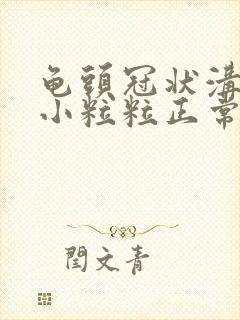 龟頭冠状溝
小粒粒正常
閏文青